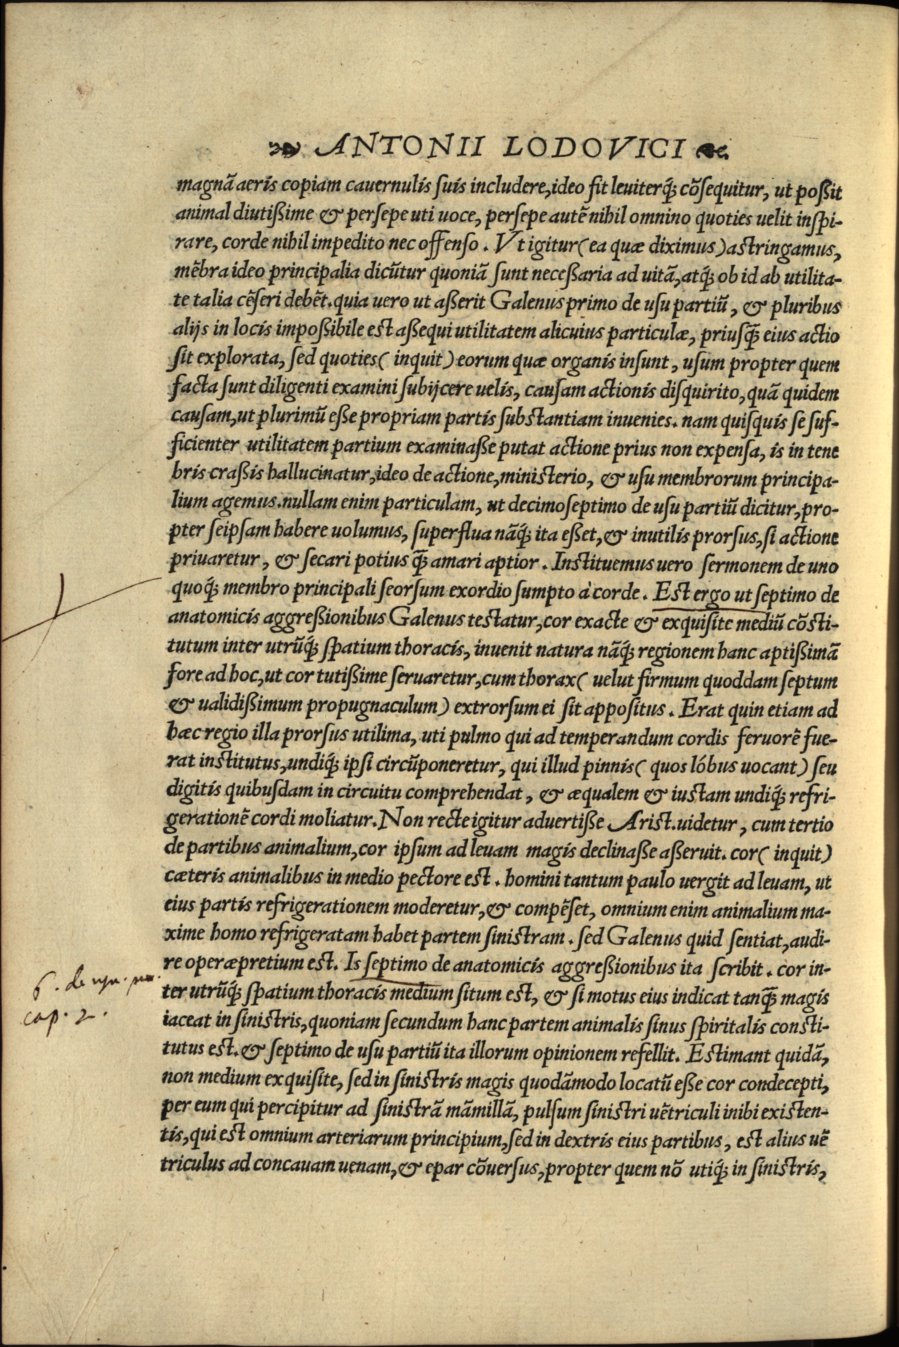 ANTONII LODOVICI
magnā aeris copiam cauernulis suis includere, ideo fit leuiterq́ꝫ cõsequitur, ut poßit
animal diutißime & persepe uti uoce, persepe autē nihil omnino quoties uelit inspi-
rare, corde nihil impedito nec offenso. Vt igitur (ea quæ diximus) astringamus,
mēbra ideo principalia dicūtur quoniā sunt neceßaria ad uitā, atq́ꝫ ob id ab utilita-
te talia cēseri debēt. quia uero ut aßerit Galenus primo de usu partiū, & pluribus
alijs in locis impoßibile est aßequi utilitatem alicuius particulæ, priusq̃ꝫ eius actio
sit explorata, sed quoties (inquit) eorum quæ organis insunt, usum propter quem
facta sunt diligenti examini subijcere uelis, causam actionis disquirito, quā quidem
causam, ut plurimū eße propriam partis substantiam inuenies. nam quisquis se suf-
ficienter utilitatem partium examinaße putat actione prius non expensa, is in tene
bris craßis hallucinatur, ideo de actione, ministerio, & usu membrorum principa-
lium agemus. nullam enim particulam, ut decimoseptimo de usu partiū dicitur, pro-
pter seipsam habere uolumus, superflua nāq́ꝫ ita eßet, & inutilis prorsus, si actione
priuaretur, & secari potius q̃ꝫ amari aptior. Instituemus uero sermonem de uno
quoq́ꝫ membro principali seorsum exordio sumpto à corde. Est ergo ut septimo de
anatomicis aggreßionibus Galenus testatur, cor exacte & exquisite mediū cõsti-
tutum inter utrūq́ꝫ spatium thoracis, inuenit natura nāq́ꝫ regionem hanc aptißimā
fore ad hoc, ut cor tutißime seruaretur, cum thorax (uelut firmum quoddam septum
& ualidißimum propugnaculum) extrorsum ei sit appositus. Erat quin etiam ad
hæc regio illa prorsus utilima, uti pulmo qui ad temperandum cordis feruorē fue-
rat institutus, undiq́ꝫ ipsi circūponeretur, qui illud pinnis (quos lóbus uocant) seu
digitis quibusdam in circuitu comprehendat, & æqualem & iustam undiq́ꝫ refri-
gerationē cordi moliatur. Non recte igitur aduertiße Arist. uidetur, cum tertio
de partibus animalium, cor ipsum ad leuam magis declinaße aßeruit. cor (inquit)
cæteris animalibus in medio pectore est. homini tantum paulo uergit ad leuam, ut
eius partis refrigerationem moderetur, & compēset, omnium enim animalium ma-
xime homo refrigeratam habet partem sinistram. sed Galenus quid sentiat, audi-
re operæpretium est. Is septimo de anatomicis aggreßionibus ita scribit. cor in-
ter utrūq́ꝫ spatium thoracis medium situm est, & si motus eius indicat tanq̃ꝫ magis
iaceat in sinistris, quoniam secundum hanc partem animalis sinus spiritalis consti-
tutus est. & septimo de usu partiū ita illorum opinionem refellit. Estimant quidā,
non medium exquisite, sed in sinistris magis quodāmodo locatū eße cor condecepti,
per eum qui percipitur ad sinistrā māmillā, pulsum sinistri uētriculi inibi existen-
tis, qui est omnium arteriarum principium, sed in dextris eius partibus, est alius uē
triculus ad concauam uenam, & epar cõuersus, propter quem nõ utiq́ꝫ in sinistris,
6. de usu. par.
cap. 2.